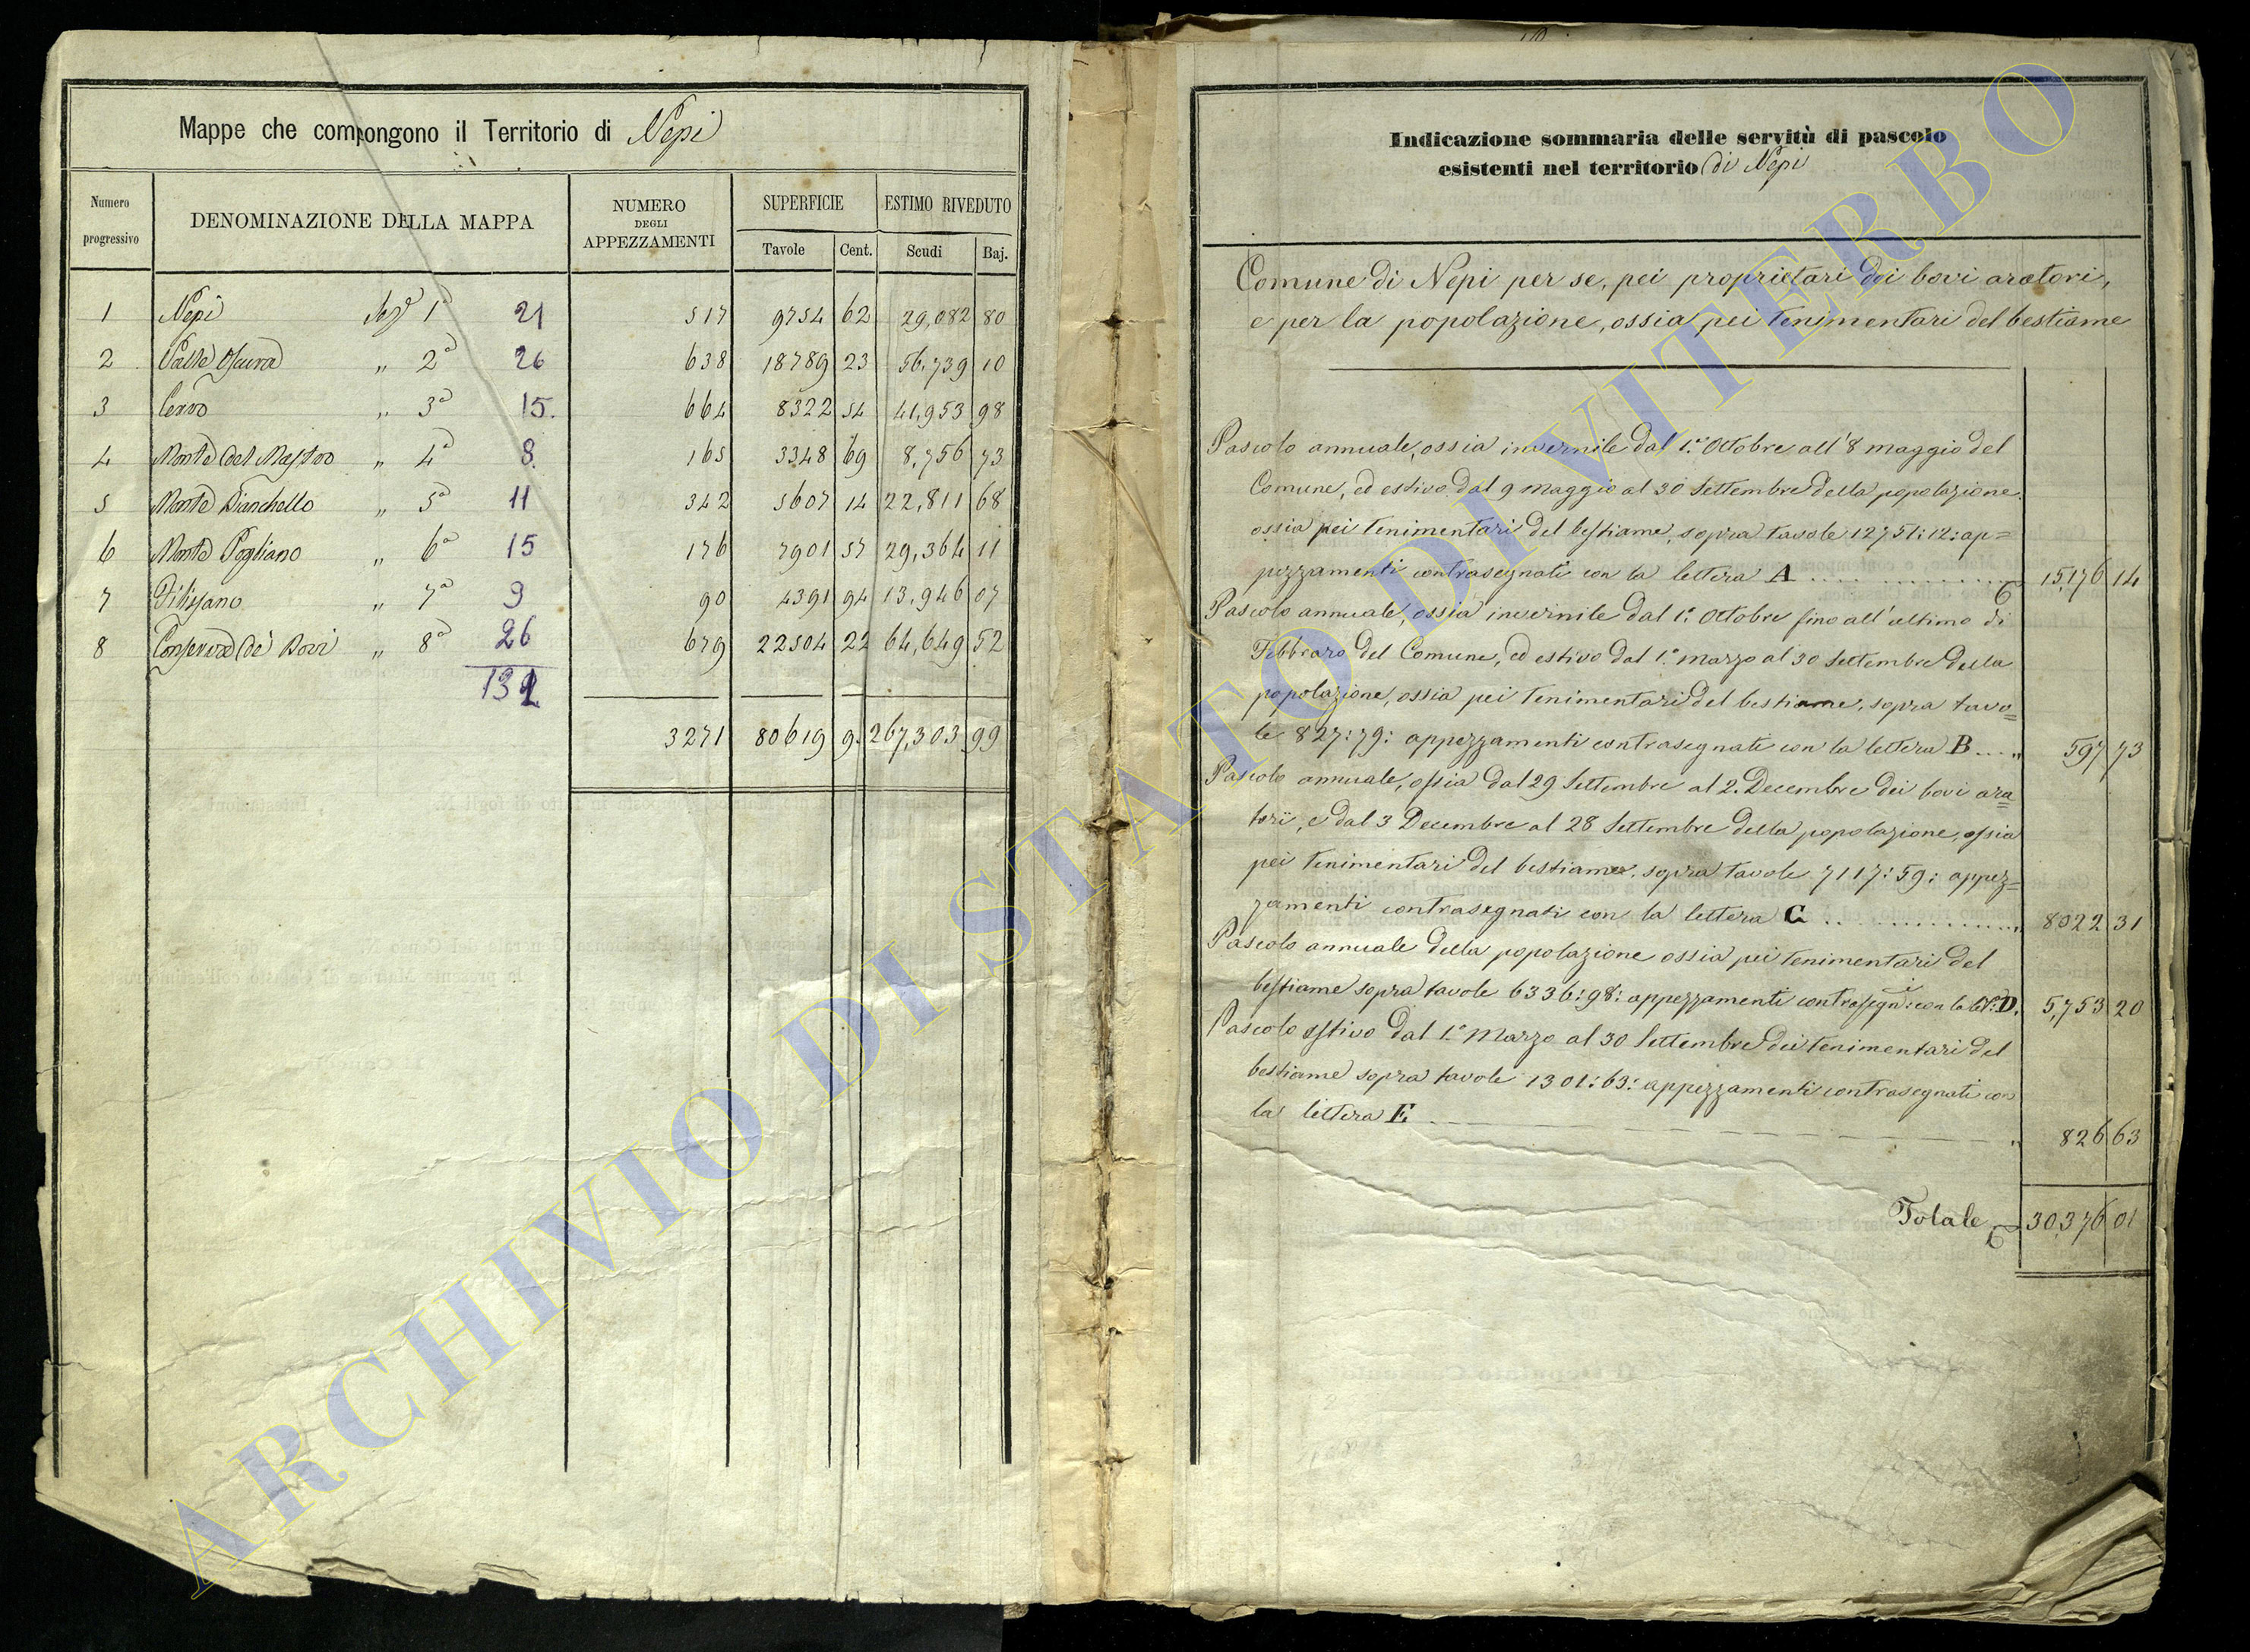 Mappe che compongono il Territorio di Nepi
Numero progressivo DENOMINAZIONE DELLA MAPPA NUMERO DEGLI APPEZZAMENTI SUPERFICIE ESTIMO RIVEDUTO
Tavole Cent. Scudi Baj.
1 Nepi 1ª 21 517 9754 62 29,082 80
2 Valle Oscura " 2ª 26 638 18789 23 56,739 10
3 Cervo " 3ª 15. 664 8322 54 41,953 98
4 Monte del Mastro " 4ª 8. 165 3348 69 8,756 73
5 Monte Bianchello " 5ª 11 342 5607 14 22,811 68
6 Monte Pogliano " 6ª 15 176 7901 57 29,364 11
7 Filissano " 7ª 9 90 4391 94 13,946 07
8 Conserva de' Bovi " 8ª 26 679 22504 22 64,649 52
131
3271 80619 9. 267,303 99
Indicazione sommaria delle servitù di pascolo
esistenti nel territorio di Nepi
Comune di Nepi per se, pei proprietari dei bovi aratori,
e per la popolazione, ossia pei tenimentari del bestiame
Pascolo annuale, ossia invernile dal 1.° Ottobre all' 8 maggio del
Comune, ed estivo dal 9 maggio al 30 Settembre della popolazione
ossia pei tenimentari del bestiame, sopra tavole 12751:12: ap=
pezzamenti contrasegnati con la lettera A .......... 15,176 14
Pascolo annuale, ossia invernile dal 1.° Ottobre fino all' ultimo di
Febbraro del Comune, ed estivo dal 1.° marzo al 30 Settembre della
popolazione, ossia pei tenimentari del bestiame, sopra tavo=
le 827:79: appezzamenti contrasegnati con la lettera B ... " 597 73
Pascolo annuale, ossia dal 29 Settembre al 2. Decembre dei bovi ara=
tori, e dal 3 Decembre al 28 Settembre della popolazione, ossia
pei tenimentari del bestiame, sopra tavole 7117:59: appez=
zamenti contrasegnati con la lettera C .......... " 8022 31
Pascolo annuale della popolazione ossia pei tenimentari del
bestiame sopra tavole 6336:98: appezzamenti contrasegn:i con la lett: D. 5,753 20
Pascolo estivo dal 1.° Marzo al 30 Settembre dei tenimentari del
bestiame sopra tavole 1301:63: appezzamenti contrasegnati con
la lettera E " 826 63
Totale 30,376 01
ARCHIVIO DI STATO DI VITERBO